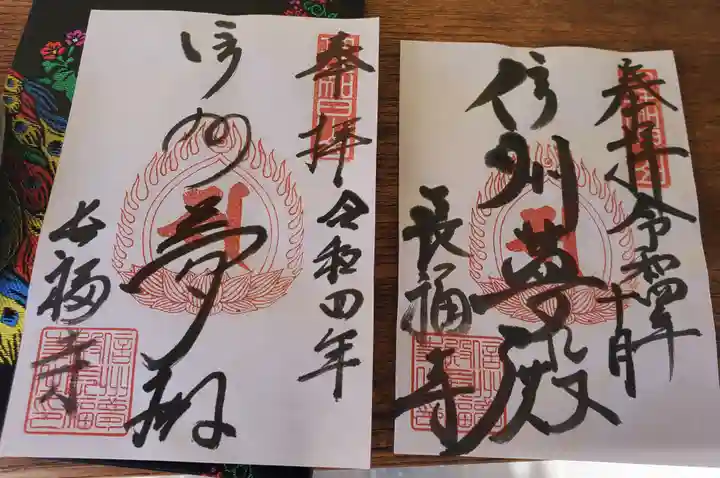 奉拝
令和四年
信州夢殿
長福寺
奉拝
令和四年
十月
信州夢殿
長福寺